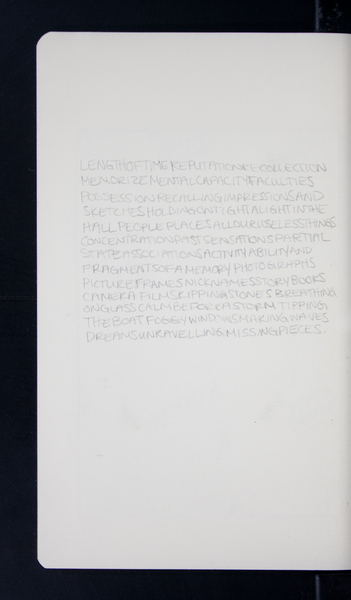 LENGTHOFTIMEREPUTATIONRECOLLECTION
MEMORIZEMENTALCAPACITYFACULTIES
POSSESSIONRECALLINGIMPRESSIONSAND
SKETCHESHOLDINGONTIGHTALIGHTINTHE
HALLPEOPLEPLACESALLOURUSELESSTHINGS
CONCENTRATIONPASTSENSATIONSPARTIAL
STATEASSOCIATIONSACTIVITYABILITYAND
FRAGMENTSOFAMEMORYPHOTOGRAPHS
PICTUREFRAMESNICKNAMESSTORYBOOKS
CAMERAFILMSKIPPINGSTONESBREATHING
ONGLASSCALMBEFOREASTORMTIPPING
THEBOATFOGGYWINDOWSMAKINGWAVES
DREAMSUNRAVELLINGMISSINGPIECES.